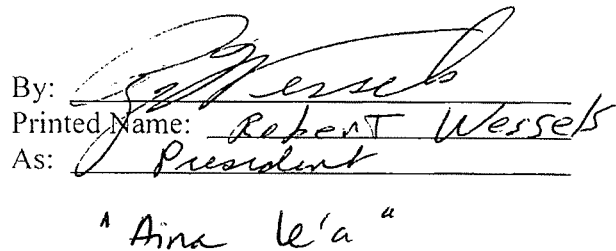 By: R Wessels
Printed Name: Robert Wessels
As: President
"Aina Le'a"